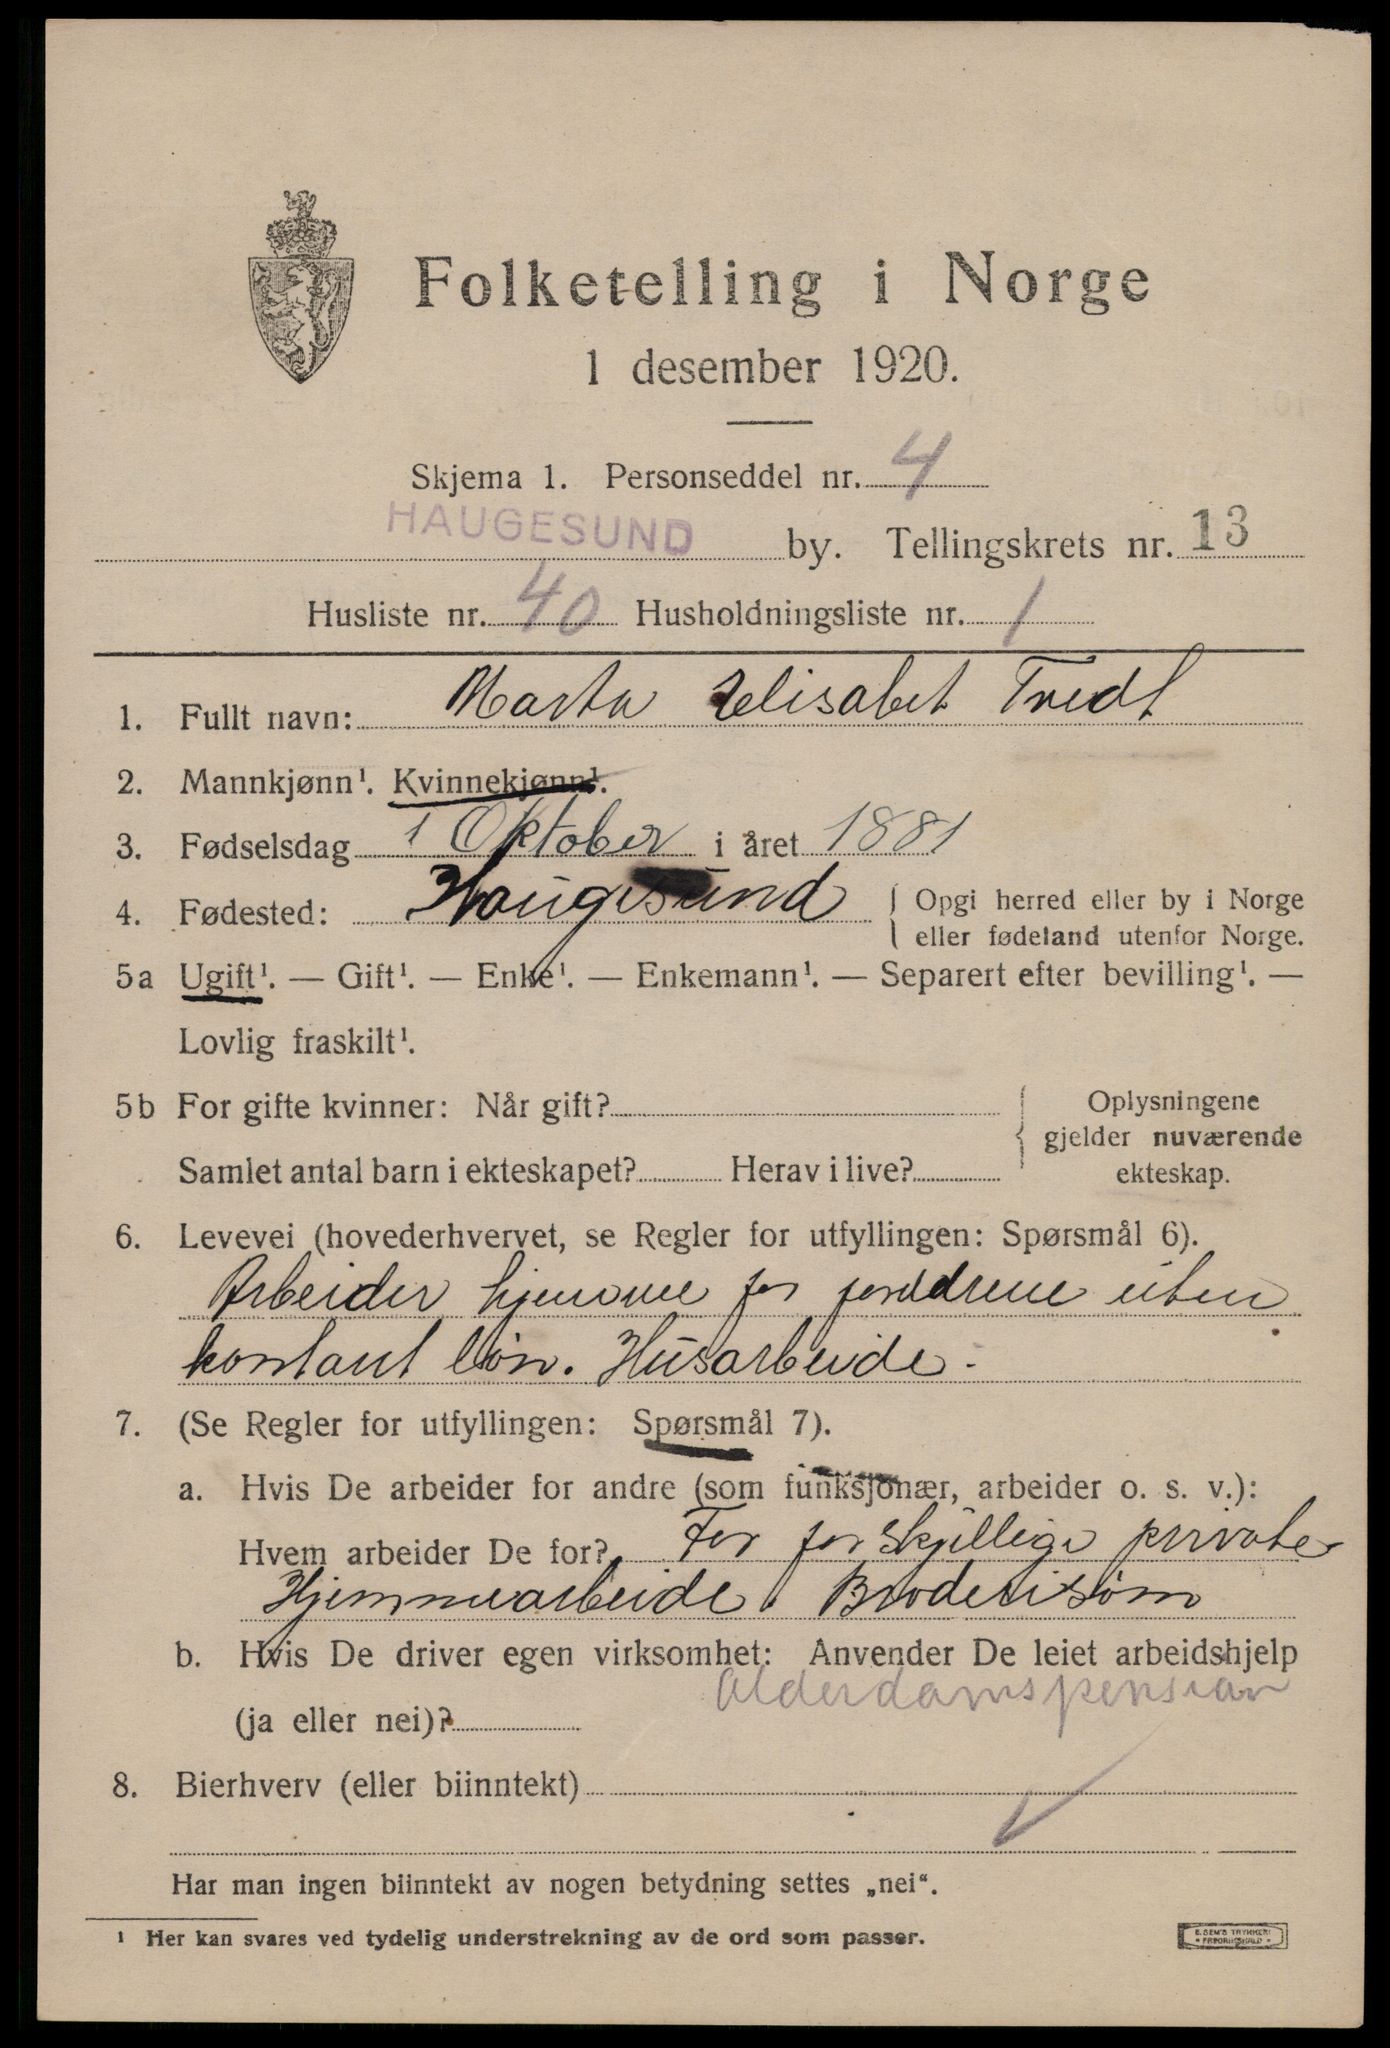 Folketelling i Norge
1 desember 1920.
Skjema 1. Personseddel nr. 4
HAUGESUND by. Tellingskrets nr. 13
Husliste nr. 40 Husholdningsliste nr. 1
1. Fullt navn: Marta Elisabet Tvedt
2. Mannkjønn¹. Kvinnekjønn¹.
3. Fødselsdag 1 Oktober i året 1881
4. Fødested: Haugesund { Opgi herred eller by i Norge
eller fødeland utenfor Norge.
5a Ugift¹. — Gift¹. — Enke¹. — Enkemann¹. — Separert efter bevilling¹. —
Lovlig fraskilt¹.
5b For gifte kvinner: Når gift? { Oplysningene
gjelder nuværende
Samlet antal barn i ekteskapet? Herav i live? ekteskap.
6. Levevei (hovederhvervet, se Regler for utfyllingen: Spørsmål 6).
Arbeider hjemme for foreldrene uten
kontant løn. Husarbeide.
7. (Se Regler for utfyllingen: Spørsmål 7).
a. Hvis De arbeider for andre (som funksjonær, arbeider o. s. v.):
Hvem arbeider De for? For forskjillige private
Hjemmearbeide Broderisøm
b. Hvis De driver egen virksomhet: Anvender De leiet arbeidshjelp
Alderdomspension
(ja eller nei)?
8. Bierhverv (eller biinntekt)
Har man ingen biinntekt av nogen betydning settes „nei“.
¹ Her kan svares ved tydelig understrekning av de ord som passer.
E. SEM'S TRYKKERI
FREDRIKSHALD